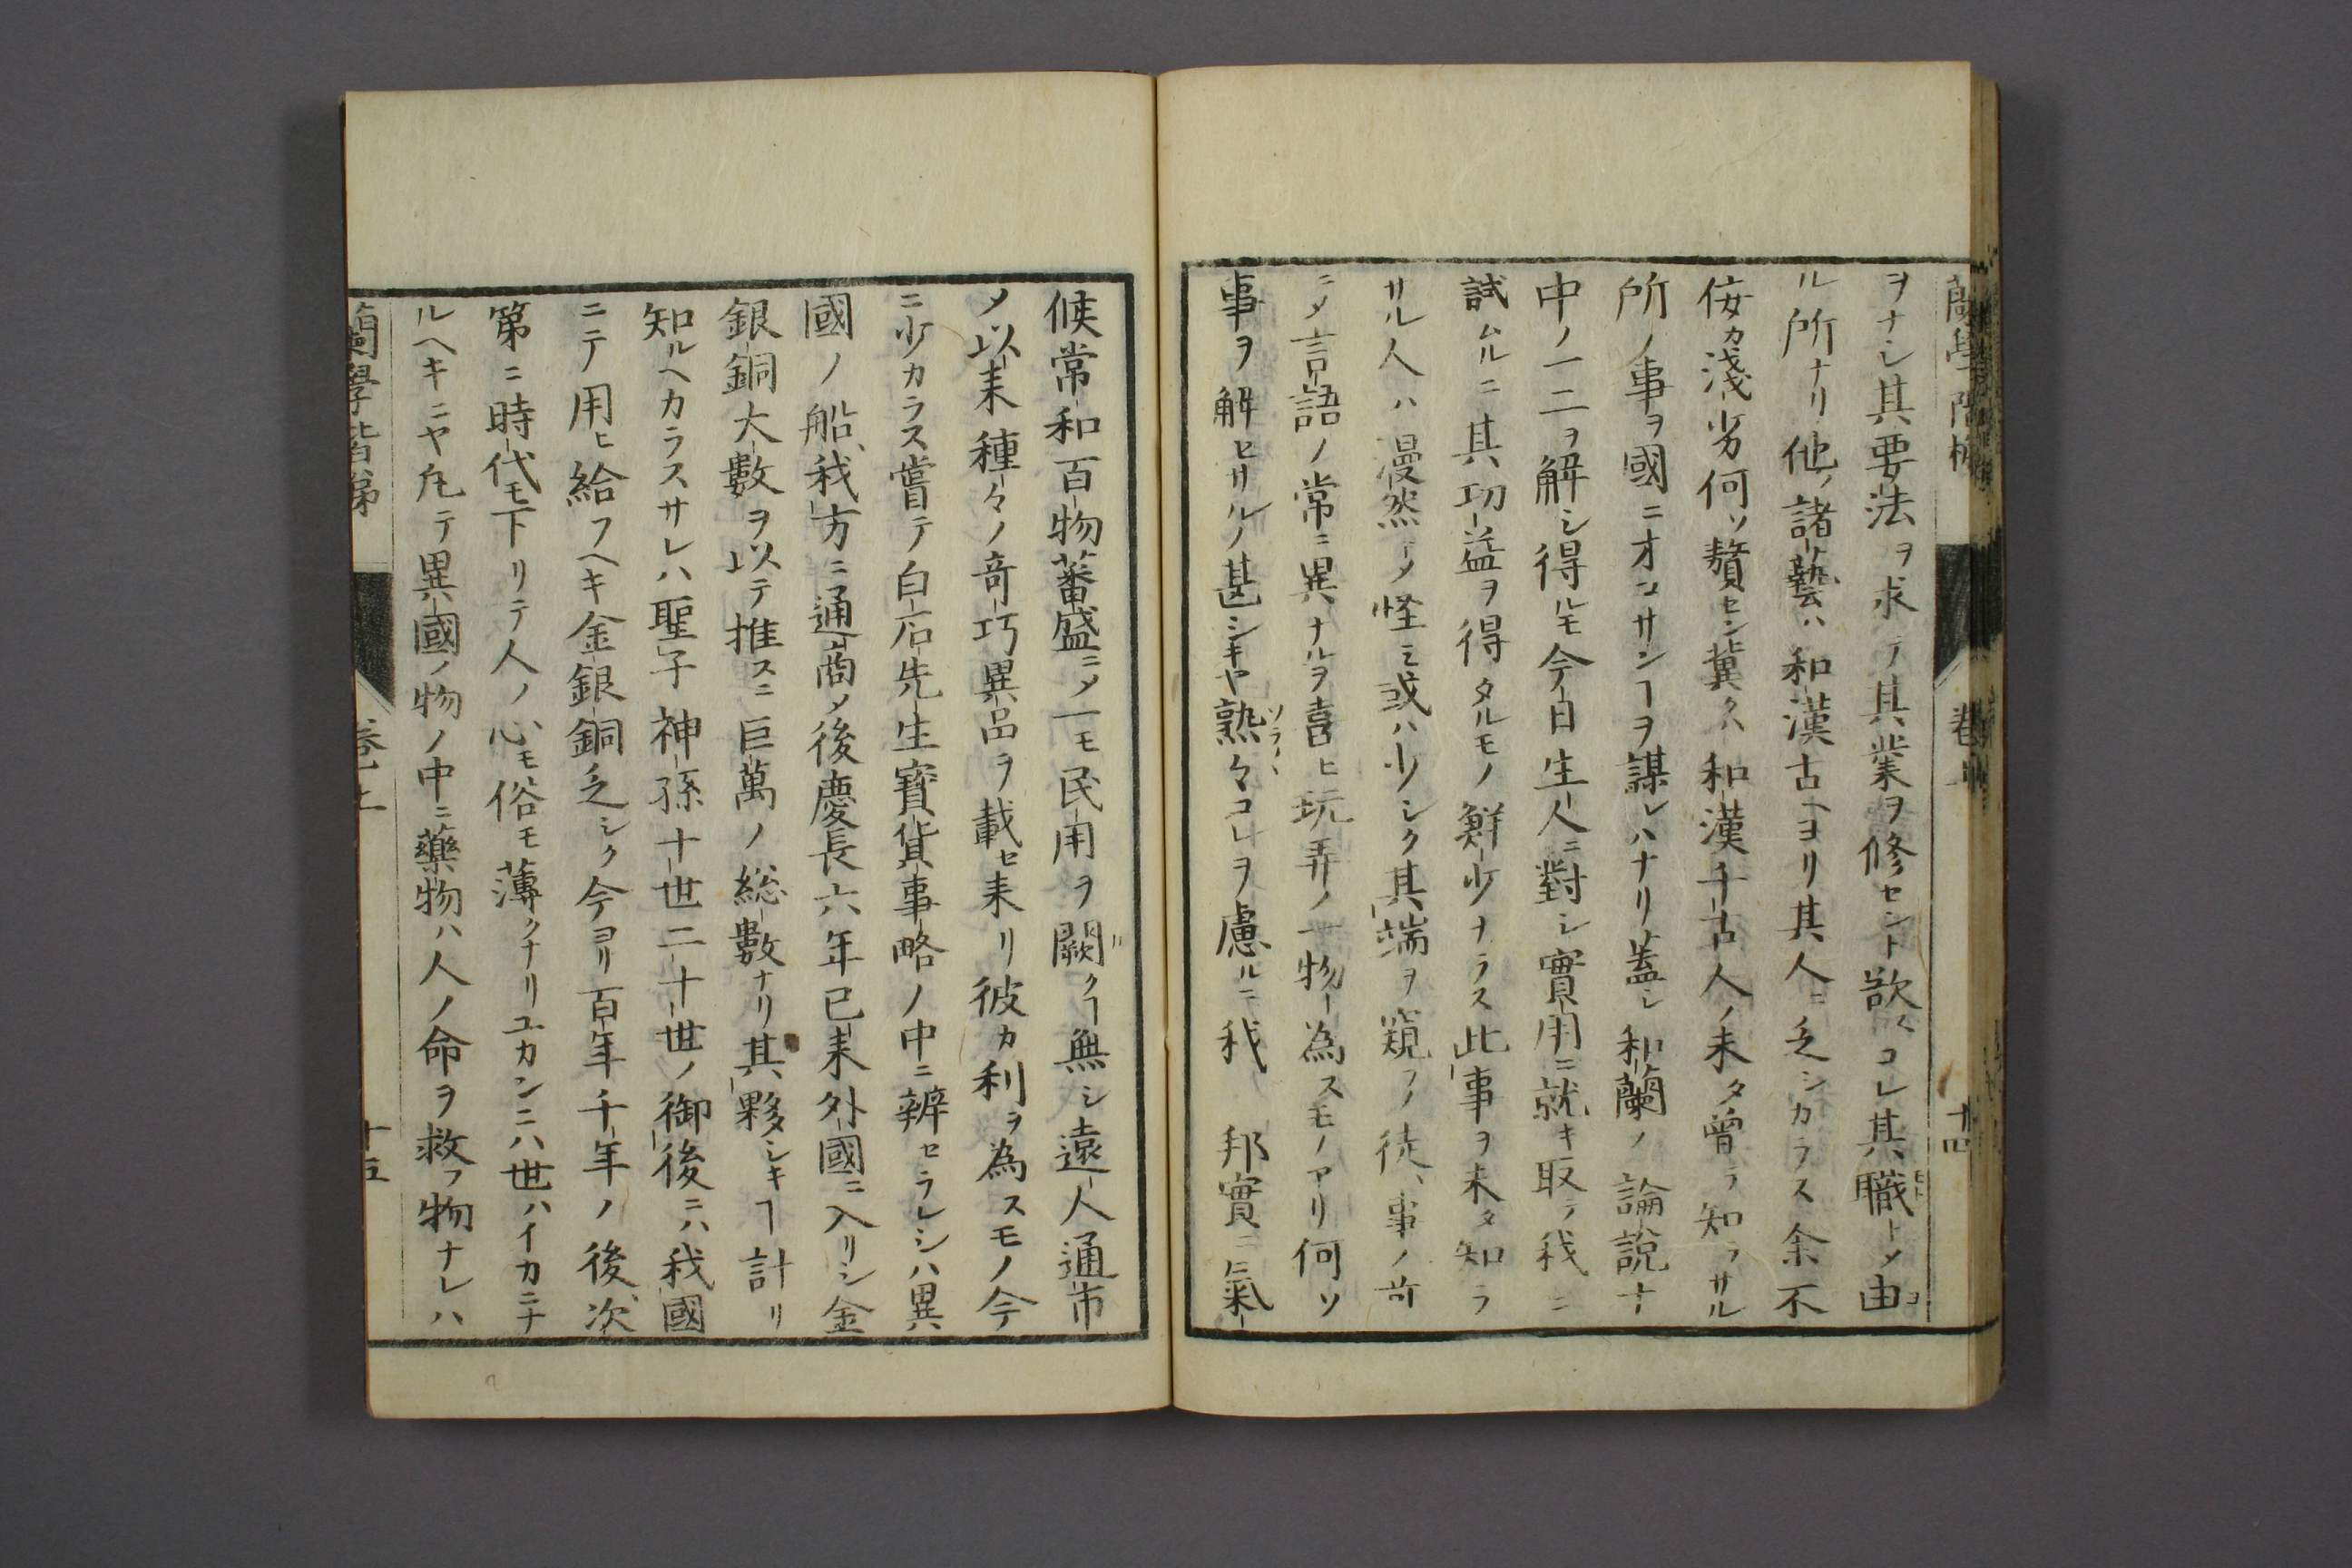 蘭學階梯 卷上 十四
ヲナシ其要法ヲ求テ其業ヲ修セント欲スコレ其職トメ由
ル所ナリ他ノ諸藝ハ和漢古ヘヨリ其人ニ乏シカラス余不
侫カ淺劣何ソ贅セン冀クハ和漢千古人ノ未タ曽テ知ラサル
所ノ事ヲ國ニオコサンヿヲ謀レハナリ蓋シ和蘭ノ論說ナ
中ノ一二ヲ解シ得ルモ今日生人ニ對シ實用ニ就キ取テ我ニ
試ムルニ其功益ヲ得タルモノ鮮少ナラス此事ヲ未タ知ラ
サル人ハ漫然トメ怪ミ或ハ少シク其端ヲ窺フノ徒、事ノ奇
ニメ言語ノ常ニ異ナルヲ喜ヒ玩弄ノ一物ト為スモノアリ何ソ
事ヲ解セサルノ甚シキヤ熟々コレヲ慮ルニ我 邦實ニ氣
候常和百物蕃盛ニメ一モ民用ヲ闕クヿ無シ遠人通市
メ以来種々ノ奇巧異品ヲ載セ来リ彼カ利ヲ為スモノ今
ニ少カラス嘗テ白石先生寶貨事略ノ中ニ辨セラレシハ異
國ノ船、我方ニ通商メ後慶長六年已来外國ニ入リシ金
銀銅大數ヲ以テ推スニ巨萬ノ総數ナリ其夥シキヿ計リ
知ルヘカラスサレハ聖子神孫十世二十世ノ御後ニハ我國
ニテ用ヒ給フヘキ金銀銅乏シク今ヨリ百年千年ノ後、次
第ニ時代モ下リテ人ノ心モ俗モ薄クナリユカンニハ世ハイカニナ
ルヘキニヤ凡テ異國ノ物ノ中ニ藥物ハ人ノ命ヲ救フ物ナレハ
蘭學階梯 卷上 十五